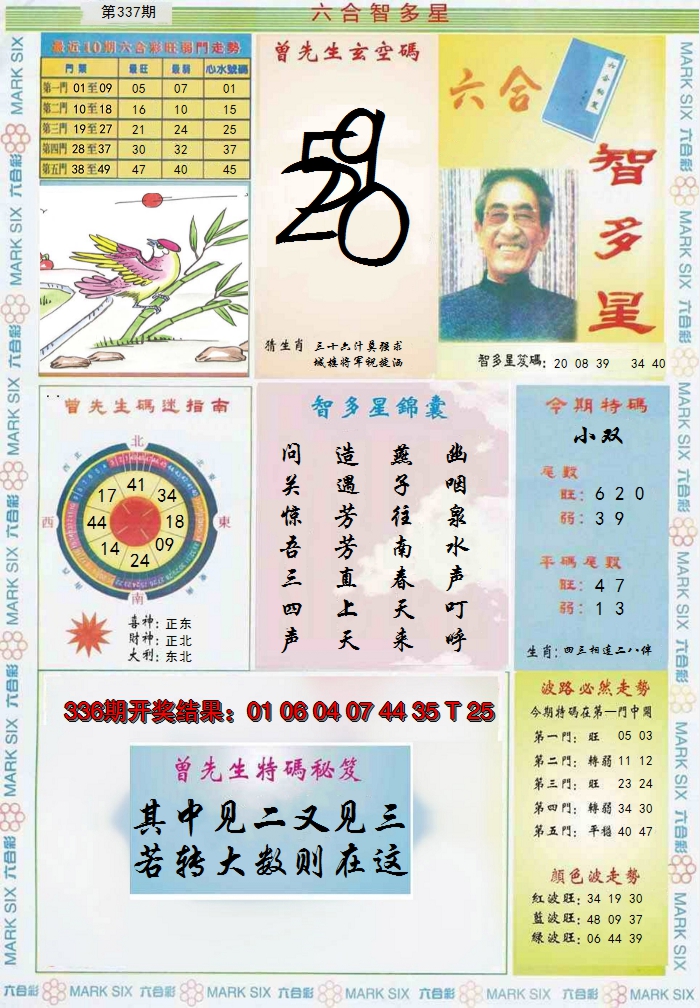 第337期
六合智多星
最近10期六合彩旺弱門走勢
門票 最旺 最弱 心水號碼
第一門 01至09 05 07 01
第二門 10至18 16 10 15
第三門 19至27 21 24 25
第四門 28至37 30 32 37
第五門 38至49 47 40 45
曾先生玄空碼
猜生肖 三十六汁莫强求
城樓將軍祝旋涵
六合
智多星
智多星笈碼：20 08 39 34 40
曾先生碼迷指南
北
西北
東北
西
東
南
41 34 18 09 24 14 44 17
喜神：正东
財神：正北
大利：东北
智多星錦囊
幽咽泉水声叮呼
燕子往南春天来
造遇芳芳直上天
问关惊吾三四声
今期特碼
小双
尾數
旺：6 2 0
弱：3 9
平碼尾數
旺：4 7
弱：1 3
生肖：四三相连二八伴
336期开奖结果：01 06 04 07 44 35 T 25
曾先生特碼秘笈
其中见二又见三
若转大数则在这
波路必然走勢
今期特碼在第一門中開
第一門：旺 05 03
第二門：轉弱 11 12
第三門：旺 23 24
第四門：轉弱 34 30
第五門：平穩 40 47
顏色波走勢
紅波旺：34 19 30
藍波旺：48 09 37
綠波旺：06 44 39
六合彩 MARK SIX 六合彩 MARK SIX 六合彩 MARK SIX 六合彩 MARK SIX 六合彩 MARK SIX